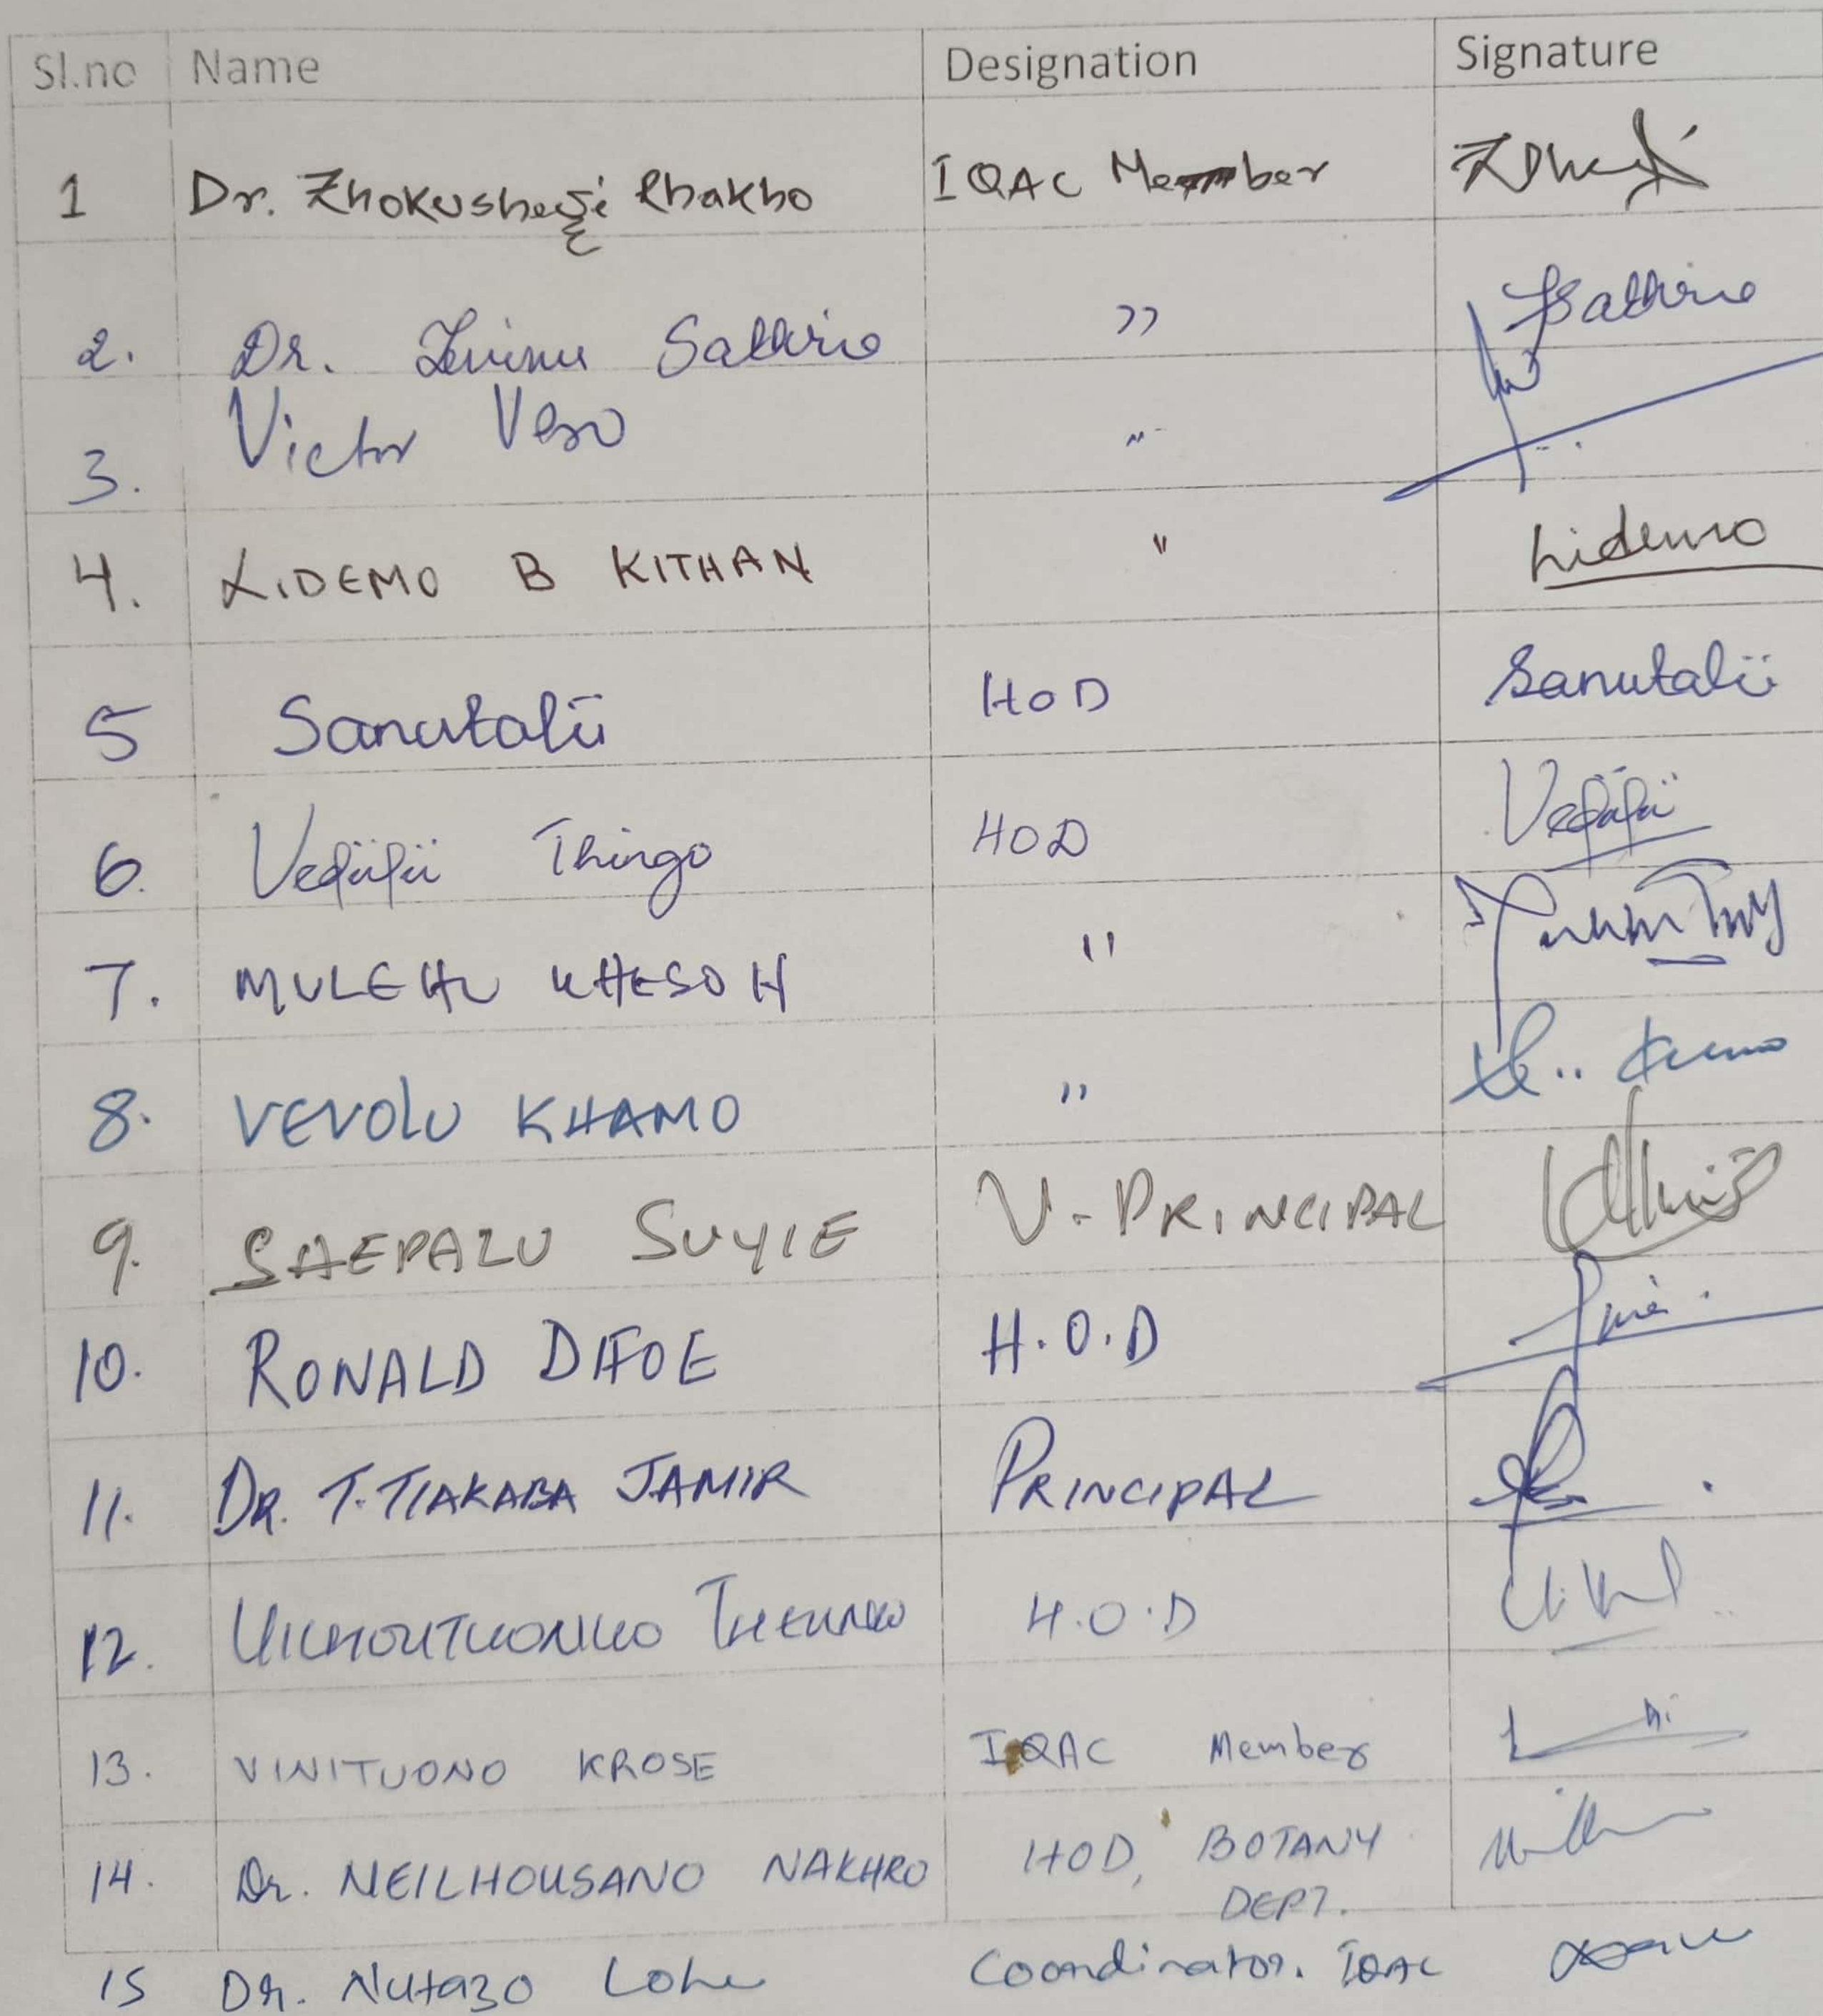 Sl.no Name Designation Signature
1 Dr. Zhokusheyi Rhakho IQAC Member
2. Dr. Sakhrie ,,
3. Victor Veso ,,
4. LIDEMO B KITHAN " Lidemo
5 Sanutalü HOD Sanutalü
6. Vefüfü Thingo HOD Vefüfü
7. MULEHU KHESOH "
8. VEVOLU KHAMO "
9. SAEPALU SUYIE V-PRINCIPAL
10. RONALD DAFOE H.O.D
11. DR. T. TIAKABA JAMIR PRINCIPAL
12. H.O.D
13. VINITUONO KROSE IQAC Member
14. Dr. NEILHOUSANO NAKHRO HOD, BOTANY
DEPT.
15 Dr. Nutazo Lohe Coordinator. IQAC